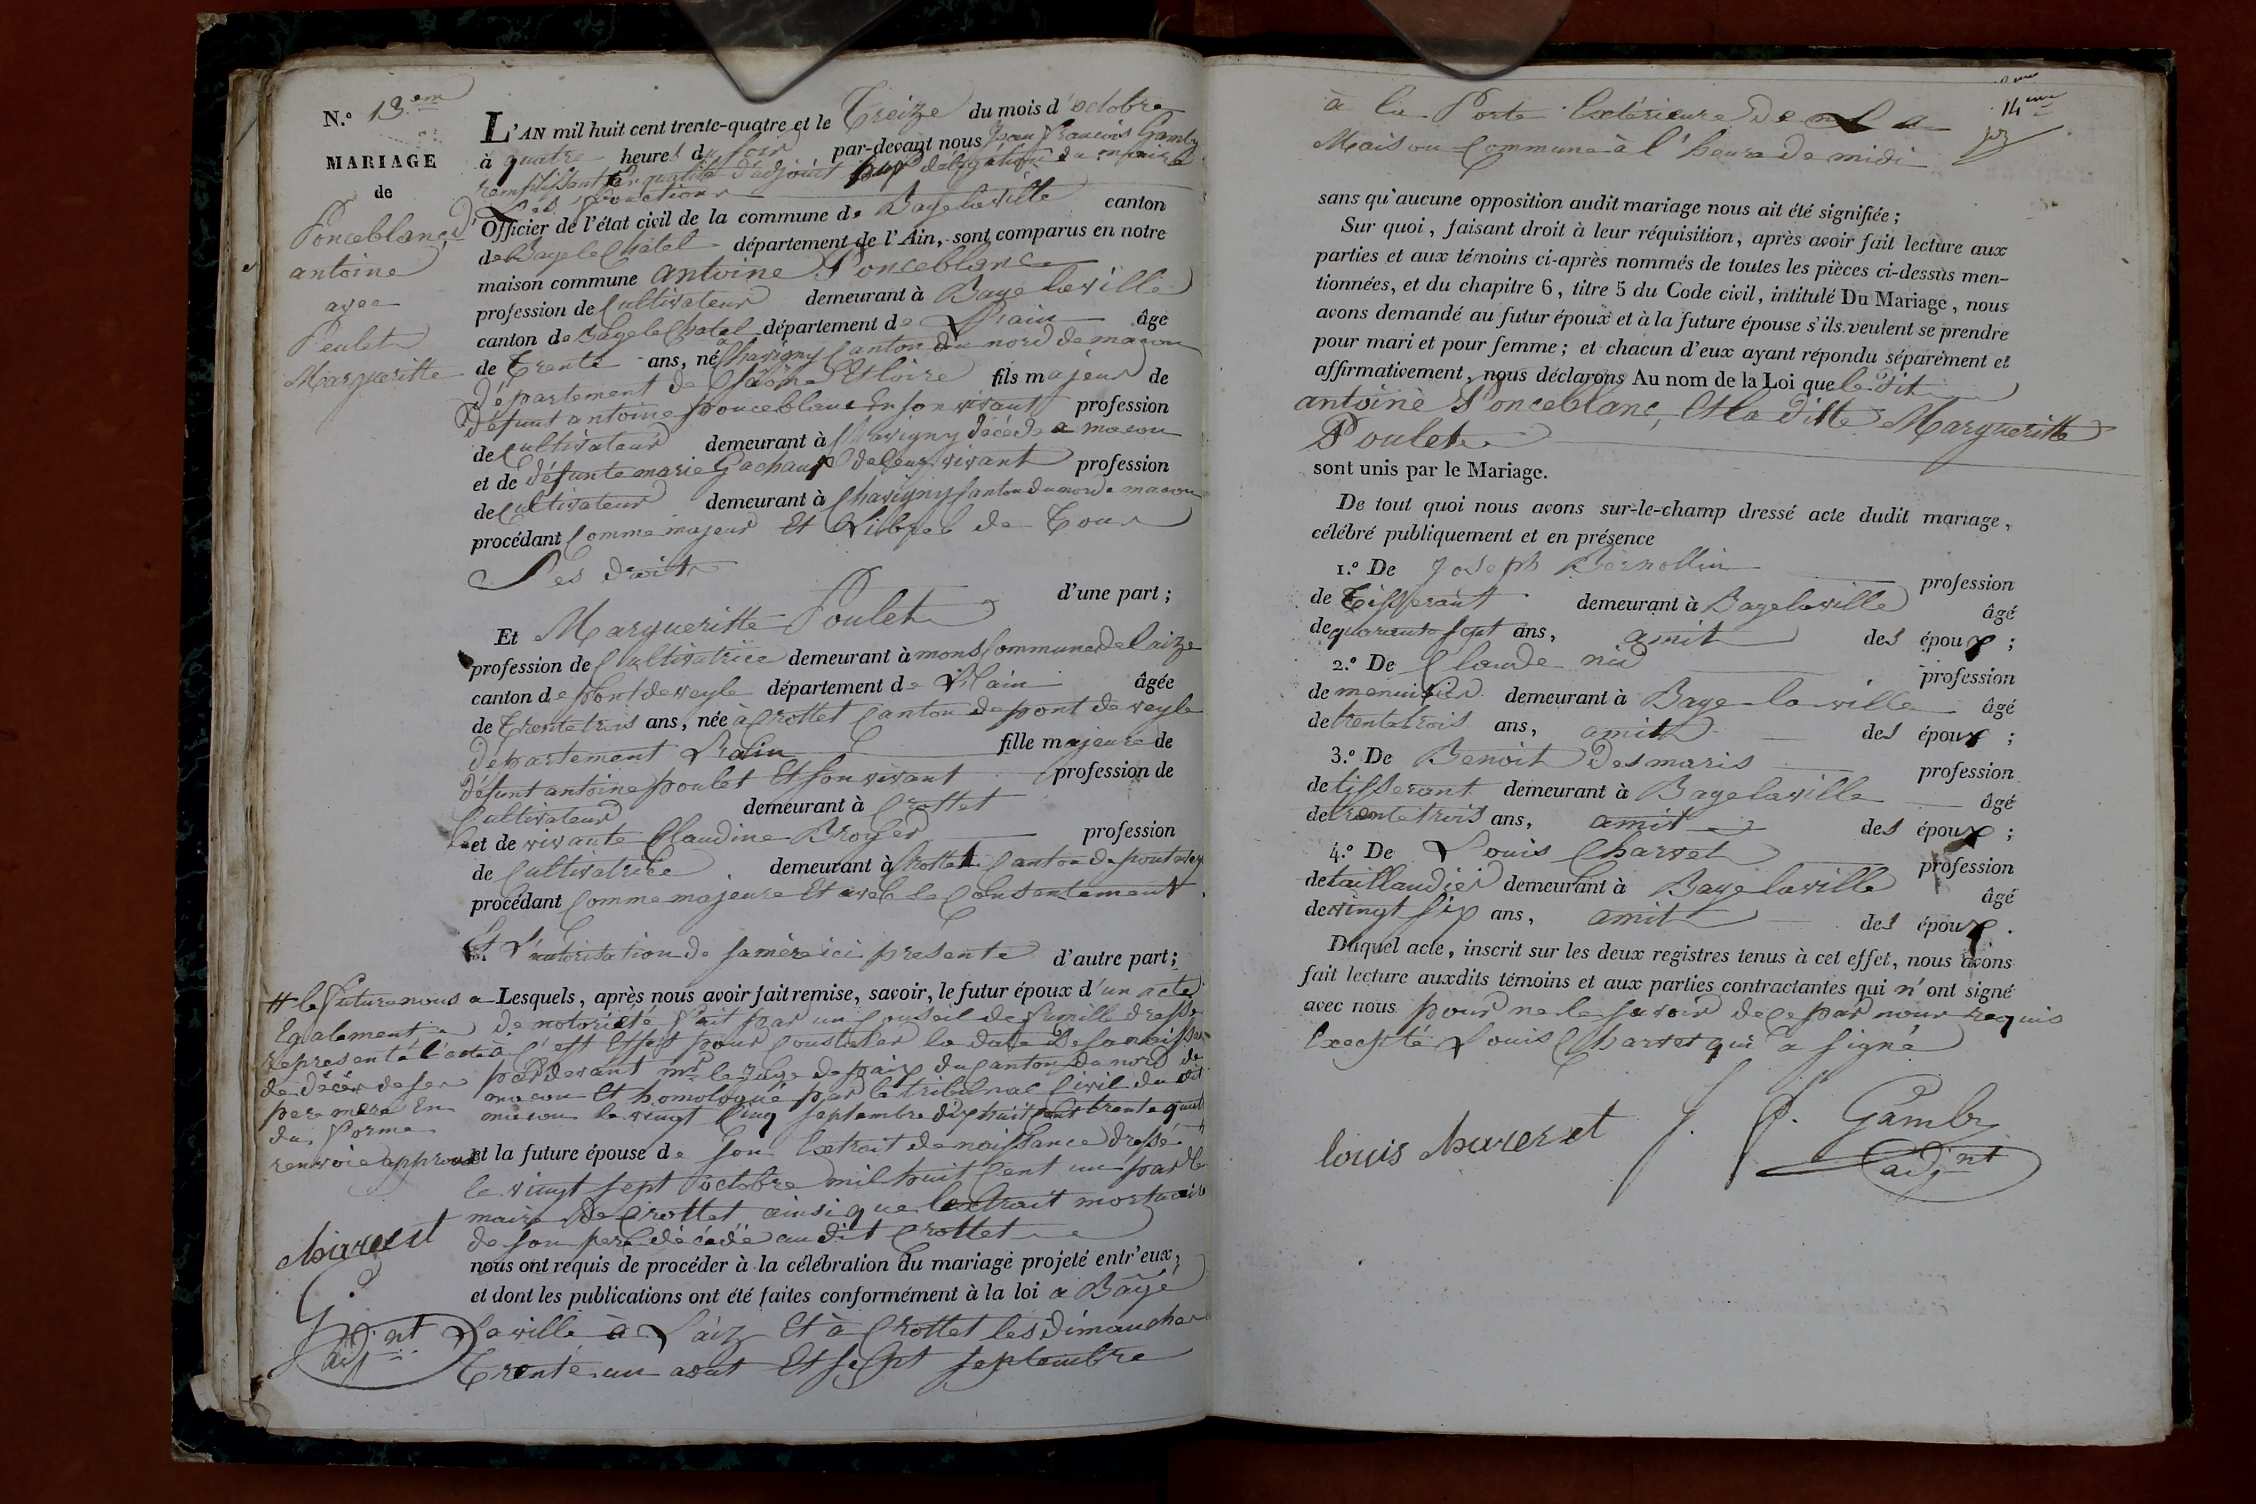 N.o 13em
MARIAGE
de
Ponceblanc
antoine
avec
Peulet
Margueritte
L'AN mil huit cent trente-quatre et le Treize du mois d'octobre
à quatre heures du soir par-devant nous Jean francois Gamby
remplissant par qualité d'adjoint par délégation du maire
les fonctions
Officier de l'état civil de la commune de Bage laville canton
de Bage le Chatel département de l'Ain, sont comparus en notre
maison commune antoine Ponceblanc
profession de Cultivateur demeurant à Bage laville
canton de Bage le Chatel département de L'ain âge
de trente ans, né à Chavigny Canton du nord de macon
département de Saone Et loire fils majeur de
défunt antoine ponceblanc En son vivant profession
de cultivateur demeurant à Chavigny décédé a macon
et de défunte marie Gachaux de leur vivant profession
de Cultivateur demeurant à Chavigny Canton du nord macon
procédant Comme majeur Et Libre de Tous
Ses droit
d'une part ;
Et Margueritte Poulet
profession de Cultivatrice demeurant à mons Commune de laize
canton de pont de veyle département de L'ain âgée
de trente trois ans, née à Crottet Canton de pont de veyle
département L'ain fille majeure de
défunt antoine poulet Et son vivant profession de
Cultivateur demeurant à Crottet
et de vivante Claudine Broyer profession
de Cultivatrice demeurant à Crottet Canton de pont vey
procédant Comme majeure Et avec le Consentement
Et L'autorisation de sa mère ici presente d'autre part ;
Lesquels, après nous avoir fait remise, savoir, le futur époux d'un acte
de notoriété fait par un Conseil de famille dressé
à c'est Effet pour Constater la date de sa naissan
par devant mr le juge de paix du canton du nord de
macon Et homologué par le tribunal Civil du dit
macon le vingt Cinq septembre dix huit cent trente quat
et la future épouse de son Extrait de naissance dressé
le vingt sept octobre mil huit Cent un par le
maire de Crottet ainsi que lextrait mortuaire
de son pere décédé au dit Crottet
nous ont requis de procéder à la célébration du mariage projeté entr'eux,
et dont les publications ont été faites conformément à la loi a Bagé
Laville à Laiz Et à Crottet les dimanches
Trente un aout Et sept septembre
# le futur nous a
Egalement
representé l'acte
de décés de ses
pere mere En
du forme
renvoie approuvé
charvet
G.
adjnt
14eme
à la Porte Extérieure de La
Maison Commune à l'heure de midi
sans qu'aucune opposition audit mariage nous ait été signifiée ;
Sur quoi, faisant droit à leur réquisition, après avoir fait lecture aux
parties et aux témoins ci-après nommés de toutes les pièces ci-dessus men-
tionnées, et du chapitre 6, titre 5 du Code civil, intitulé Du Mariage, nous
avons demandé au futur époux et à la future épouse s'ils veulent se prendre
pour mari et pour femme ; et chacun d'eux ayant répondu séparément et
affirmativement, nous déclarons Au nom de la Loi que le dit
antoine Ponceblanc, Et la ditte Margueritte
Poulet
sont unis par le Mariage.
De tout quoi nous avons sur-le-champ dressé acte dudit mariage,
célébré publiquement et en présence
1.o De Joseph Bernollin profession
de Tisserant demeurant à Bage laville âgé
de quarante sept ans, amit des époux ;
2.o De Claude nid profession
de menuisier demeurant à Bage la ville âgé
de trente trois ans, amit des époux ;
3.o De Benoit Desmaris profession
de tisserant demeurant à Bage laville âgé
de trente trois ans, amit des époux ;
4.o De Louis Charvet profession
de taillandier demeurant à Bage laville âgé
de vingt six ans, amit des époux .
Duquel acte, inscrit sur les deux registres tenus à cet effet, nous avons
fait lecture auxdits témoins et aux parties contractantes qui n'ont signé
avec nous pour ne le savoir de ce par nous requis
Excepté Louis Charvet qui a signé
louis charvet J. f. Gamby
adjnt